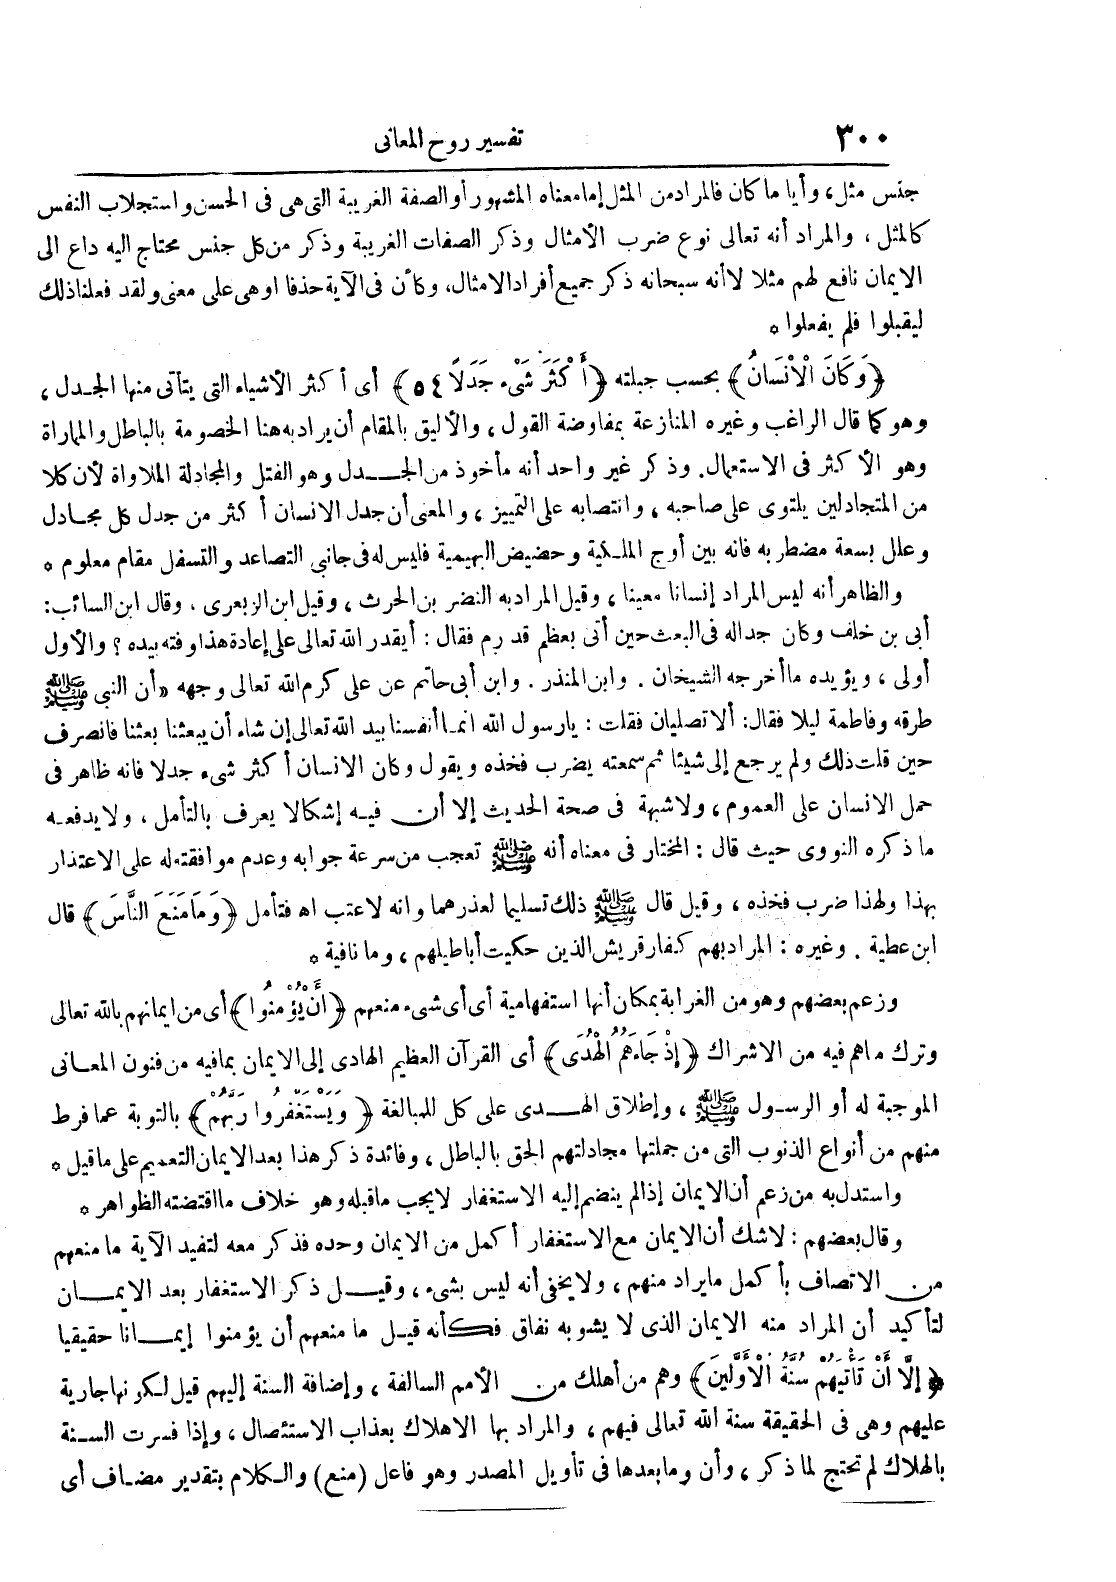 ٣٠٠
تفسير روح المعانى
جنس مثل، وأيا ما كان فالمراد من المثل إما معناه المشهور أو الصفة الغريبة التى هى فى الحسن واستجلاب النفس
كالمثل، والمراد أنه تعالى نوع ضرب الأمثال وذكر الصفات الغريبة وذكر من كل جنس محتاج اليه داع الى
الايمان نافع لهم مثلا لا أنه سبحانه ذكر جميع أفراد الامثال، وكأن فى الآية حذفا او هى على معنى ولقد فعلنا ذلك
ليقبلوا فلم يفعلوا *
﴿وَكَانَ الْإِنْسَانُ﴾ بحسب جبلته ﴿أَكْثَرَ شَىْءٍ جَدَلًا ٥٤﴾ أى أكثر الأشياء التى يتأتى منها الجدل،
وهو كما قال الراغب وغيره المنازعة بمفاوضة القول، والأليق بالمقام أن يراد به هنا الخصومة بالباطل والمماراة
وهو الأكثر فى الاستعمال. وذكر غير واحد أنه مأخوذ من الجدل وهو الفتل والمجادلة الملاواة لأن كلا
من المتجادلين يلتوى على صاحبه، وانتصابه على التمييز، والمعنى أن جدل الانسان أكثر من جدل كل مجادل
وعلل بسعة مضطربه فانه بين أوج الملكية وحضيض البهيمية فليس له فى جانبي التصاعد والتسفل مقام معلوم *
والظاهر أنه ليس المراد إنسانا معينا، وقيل المراد به النضر بن الحرث، وقيل ابن الزبعرى، وقال ابن السائب:
أبى بن خلف وكان جداله فى البعث حين أتى بعظم قد رم فقال: أيقدر الله تعالى على إعادة هذا وفته بيده؟ والأول
أولى، ويؤيده ما أخرجه الشيخان. وابن المنذر. وابن أبى حاتم عن على كرم الله تعالى وجهه «أن النبى ﷺ
طرقه وفاطمة ليلا فقال: ألا تصليان فقلت: يا رسول الله انما أنفسنا بيد الله تعالى إن شاء أن يبعثنا بعثنا فانصرف
حين قلت ذلك ولم يرجع إلى شيئا ثم سمعته يضرب فخذه ويقول وكان الانسان أكثر شىء جدلا فانه ظاهر فى
حمل الانسان على العموم، ولا شبهة فى صحة الحديث إلا أن فيه إشكالا يعرف بالتأمل، ولا يدفعه
ما ذكره النووى حيث قال: المختار فى معناه أنه ﷺ تعجب من سرعة جوابه وعدم موافقته له على الاعتذار
بهذا ولهذا ضرب فخذه، وقيل قال ﷺ ذلك تسليما لعذرهما وانه لا عتب اه فتأمل ﴿وَمَا مَنَعَ النَّاسَ﴾ قال
ابن عطية. وغيره: المراد بهم كفار قريش الذين حكيت أباطيلهم، وما نافية *
وزعم بعضهم وهو من الغرابة بمكان أنها استفهامية أى أى شىء منعهم ﴿أَنْ يُؤْمِنُوا﴾ أى من ايمانهم بالله تعالى
وترك ما هم فيه من الاشراك ﴿إِذْ جَاءَهُمُ الْهُدَى﴾ أى القرآن العظيم الهادى إلى الايمان بما فيه من فنون المعانى
الموجبة له أو الرسول ﷺ، وإطلاق الهدى على كل للمبالغة ﴿وَيَسْتَغْفِرُوا رَبَّهُمْ﴾ بالتوبة عما فرط
منهم من أنواع الذنوب التى من جملتها مجادلتهم الحق بالباطل، وفائدة ذكر هذا بعد الايمان التعميم على ما قيل *
واستدل به من زعم أن الايمان إذا لم ينضم إليه الاستغفار لا يجب ما قبله وهو خلاف ما اقتضته الظواهر *
وقال بعضهم: لا شك أن الايمان مع الاستغفار أكمل من الايمان وحده فذكر معه لتفيد الآية ما منعهم
من الاتصاف بأكمل ما يراد منهم، ولا يخفى أنه ليس بشىء، وقيل ذكر الاستغفار بعد الايمان
لتأكيد أن المراد منه الايمان الذى لا يشوبه نفاق فكأنه قيل ما منعهم أن يؤمنوا إيمانا حقيقيا
﴿إِلَّا أَنْ تَأْتِيَهُمْ سُنَّةُ الْأَوَّلِينَ﴾ وهم من أهلك من الأمم السالفة، وإضافة السنة إليهم قيل لكونها جارية
عليهم وهى فى الحقيقة سنة الله تعالى فيهم، والمراد بها الاهلاك بعذاب الاستئصال، وإذا فسرت السنة
بالهلاك لم تحتج لما ذكر، وأن وما بعدها فى تأويل المصدر وهو فاعل (منع) والكلام بتقدير مضاف أى